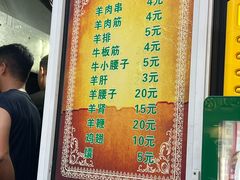 羊肉串 4元
羊肉筋 4元
羊排 5元
牛板筋 4元
牛小腰子 5元
羊肝 3元
羊腰子 20元
羊肾 15元
羊鞭 20元
鸡翅 10元
馕 5元